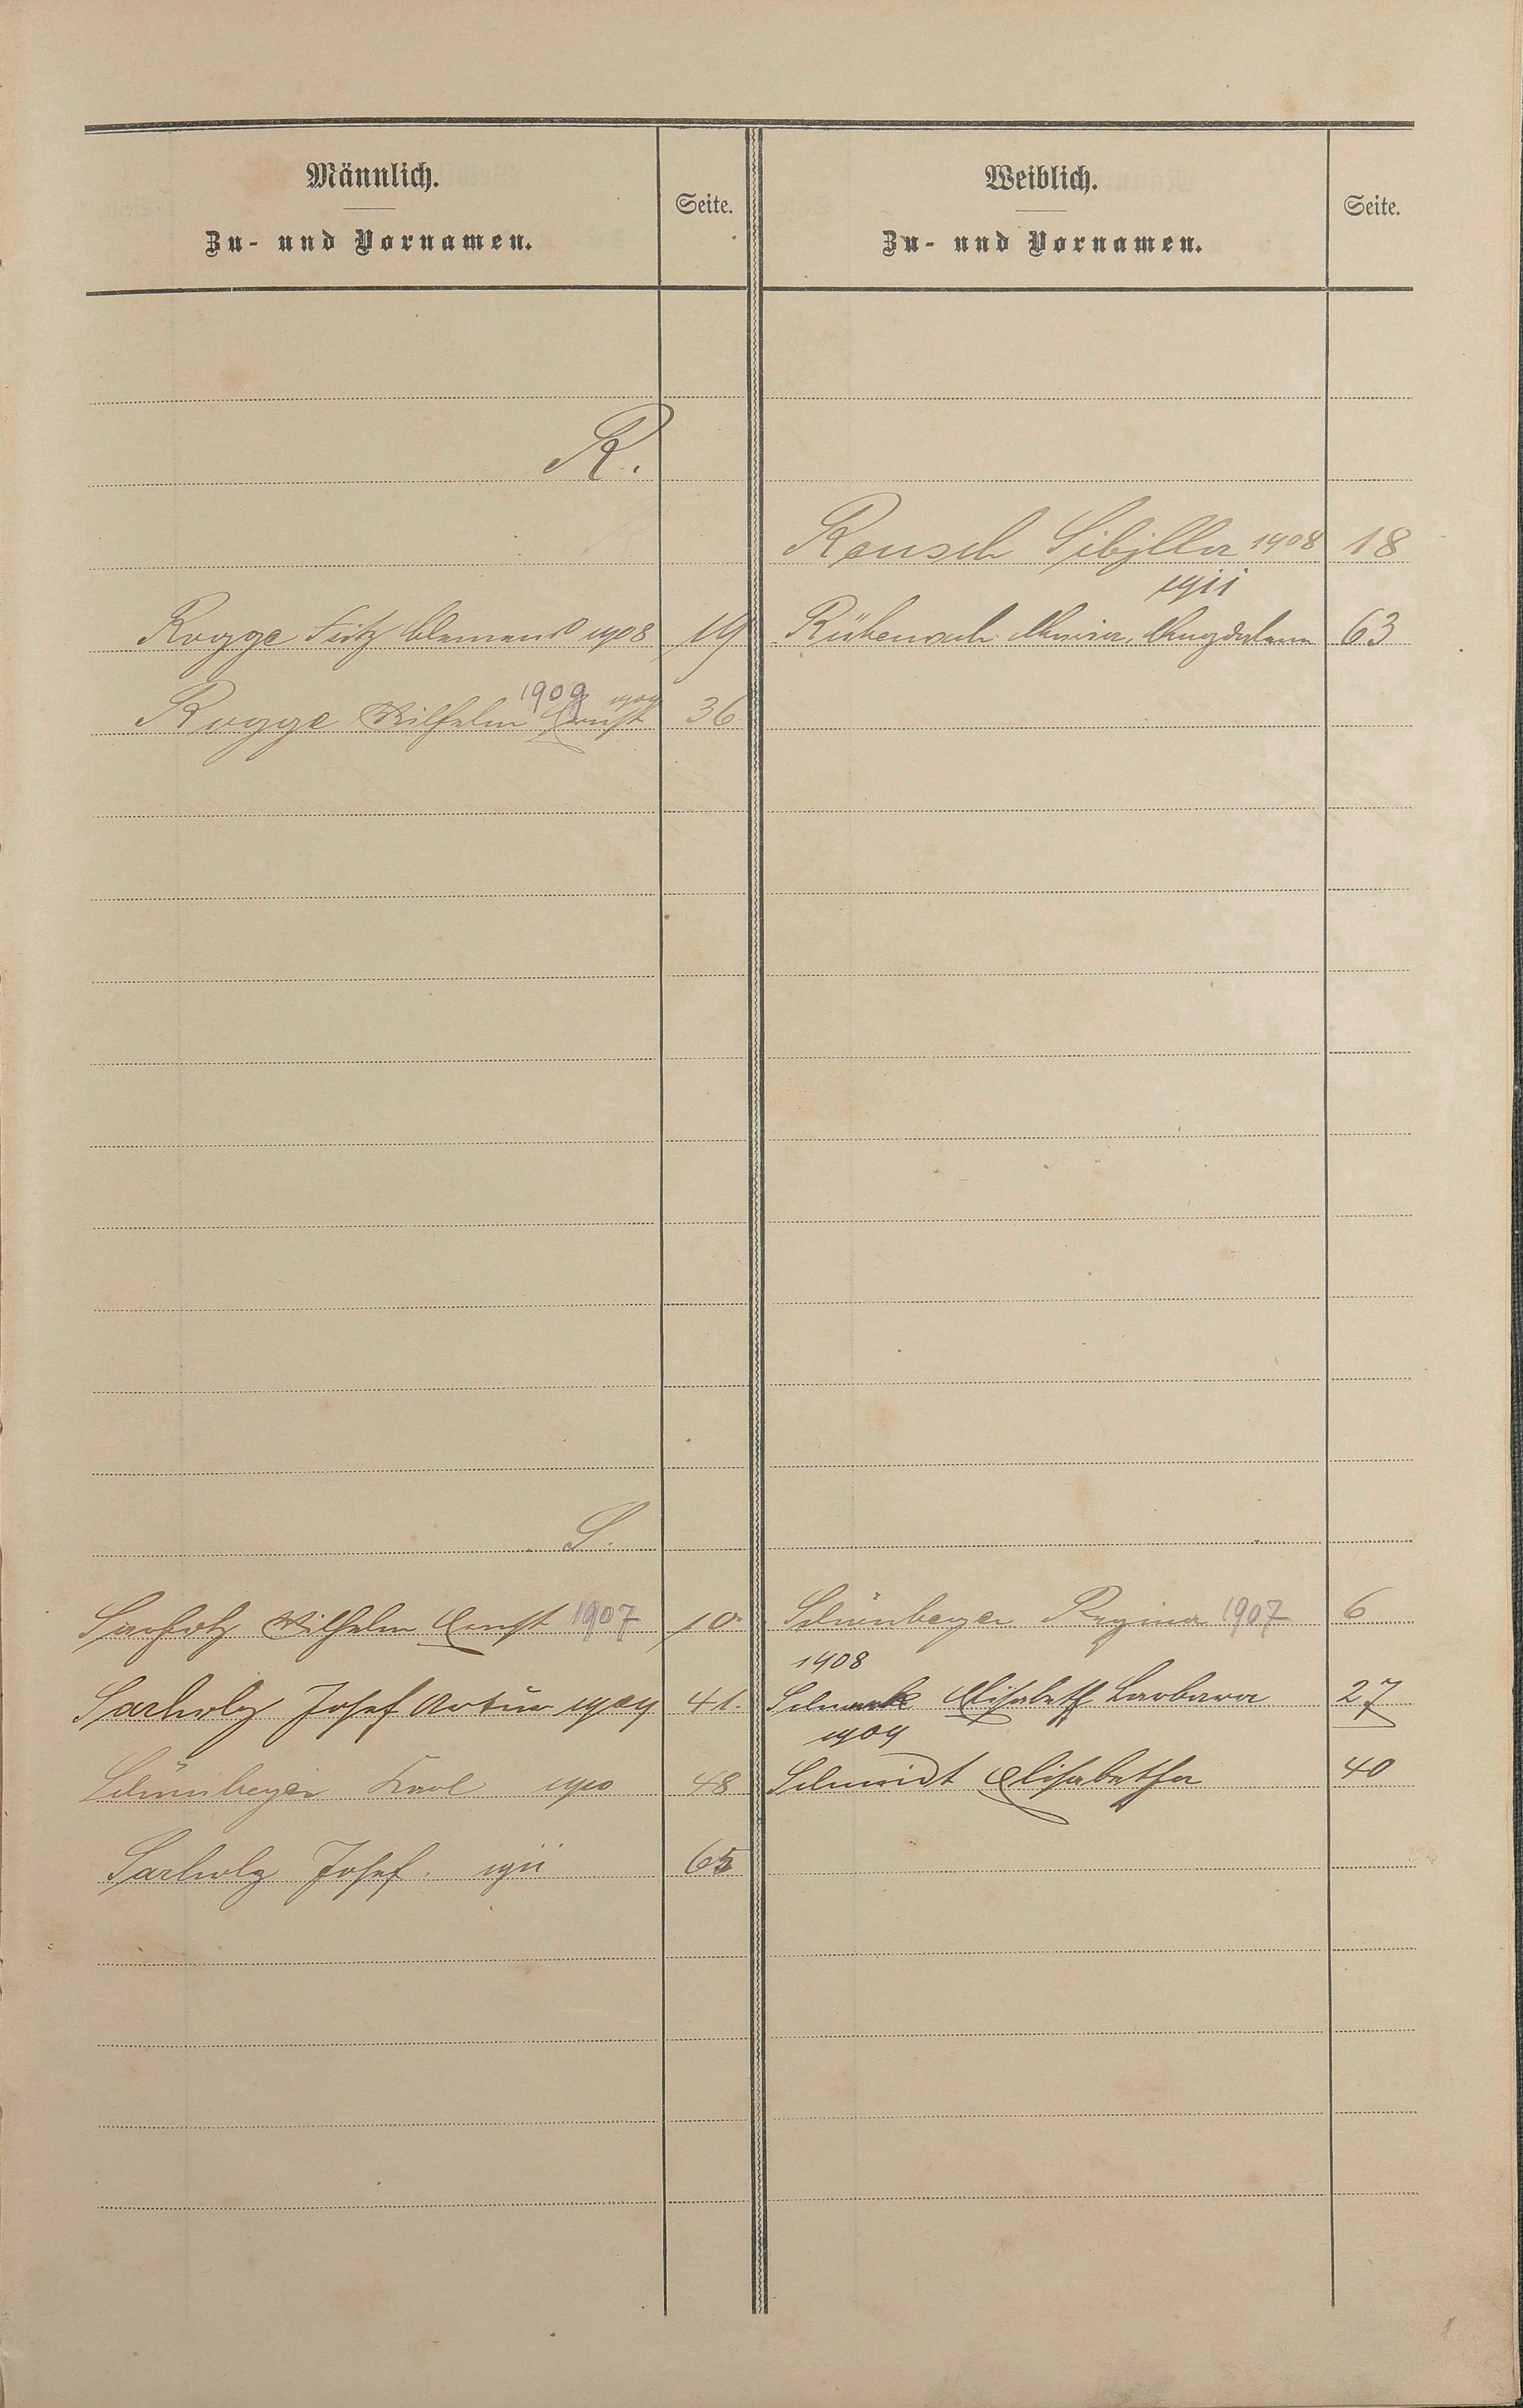 Männlich.
Zu- und Vornamen.
Seite.
Weiblich.
Zu- und Vornamen.
Seite.
R.
Reusch Sibylla 1908 18
1911
Rogge Fritz Clemens 1908 19
Rübenach Maria Magdalena 63
1909 1909
Rogge Wilhelm Ernst 36
S.
Sarholz Wilhelm Ernst 1907 10
Schönberger Regina 1907 6
1908
Sarholz Josef Artur 1909 41.
Elisabeth Barbara 27
1909
Schönberger Karl 1910 48
Schmidt Elisabetha 40
Sarholz Josef. 1911 65